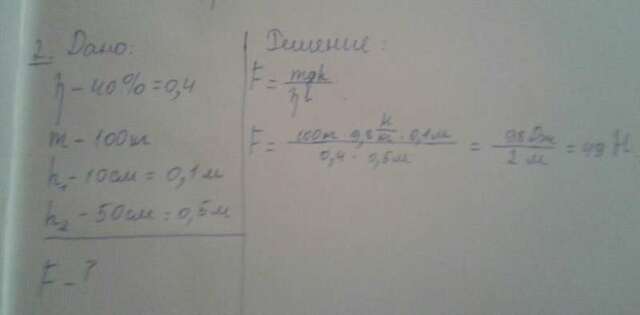 2. Дано:
η - 40% = 0,4
m - 100кг
h₁ - 10см = 0,1м
h₂ - 50см = 0,5м
F - ?
Решение:
F = mgh / ηl
F = 100кг · 9,8 Н/кг · 0,1м / 0,4 · 0,5м = 98Дж / 2м = 49 Н